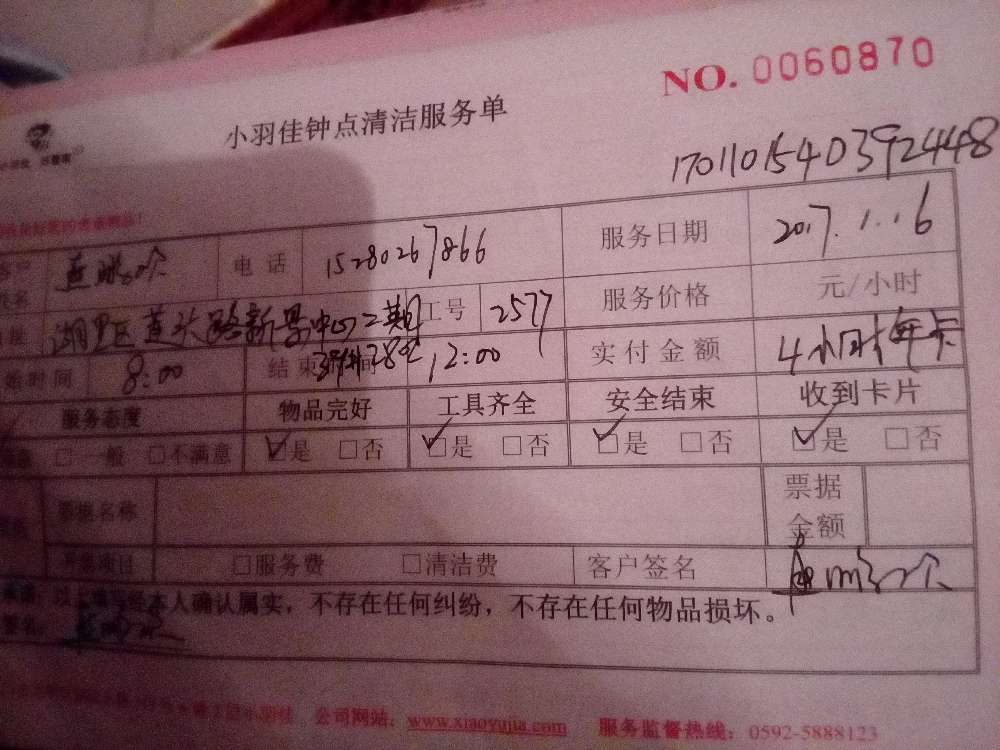 NO. 0060870
小羽佳钟点清洁服务单
1701101540392448
电话 15280267866 服务日期 2017.1.16
工号 2577 服务价格 元/小时
湖里区莲头路新景中心二期
始时间 8:00 结束时间 12:00 实付金额 4小时年卡
服务态度 物品完好 工具齐全 安全结束 收到卡片
□一般 □不满意 ☑是 □否 ☑是 □否 ☑是 □否 ☑是 □否
票据名称 票据金额
开票项目 □服务费 □清洁费 客户签名
本人确认属实，不存在任何纠纷，不存在任何物品损坏。
签名:
公司网站：www.xiaoyujia.com 服务监督热线：0592-5888123